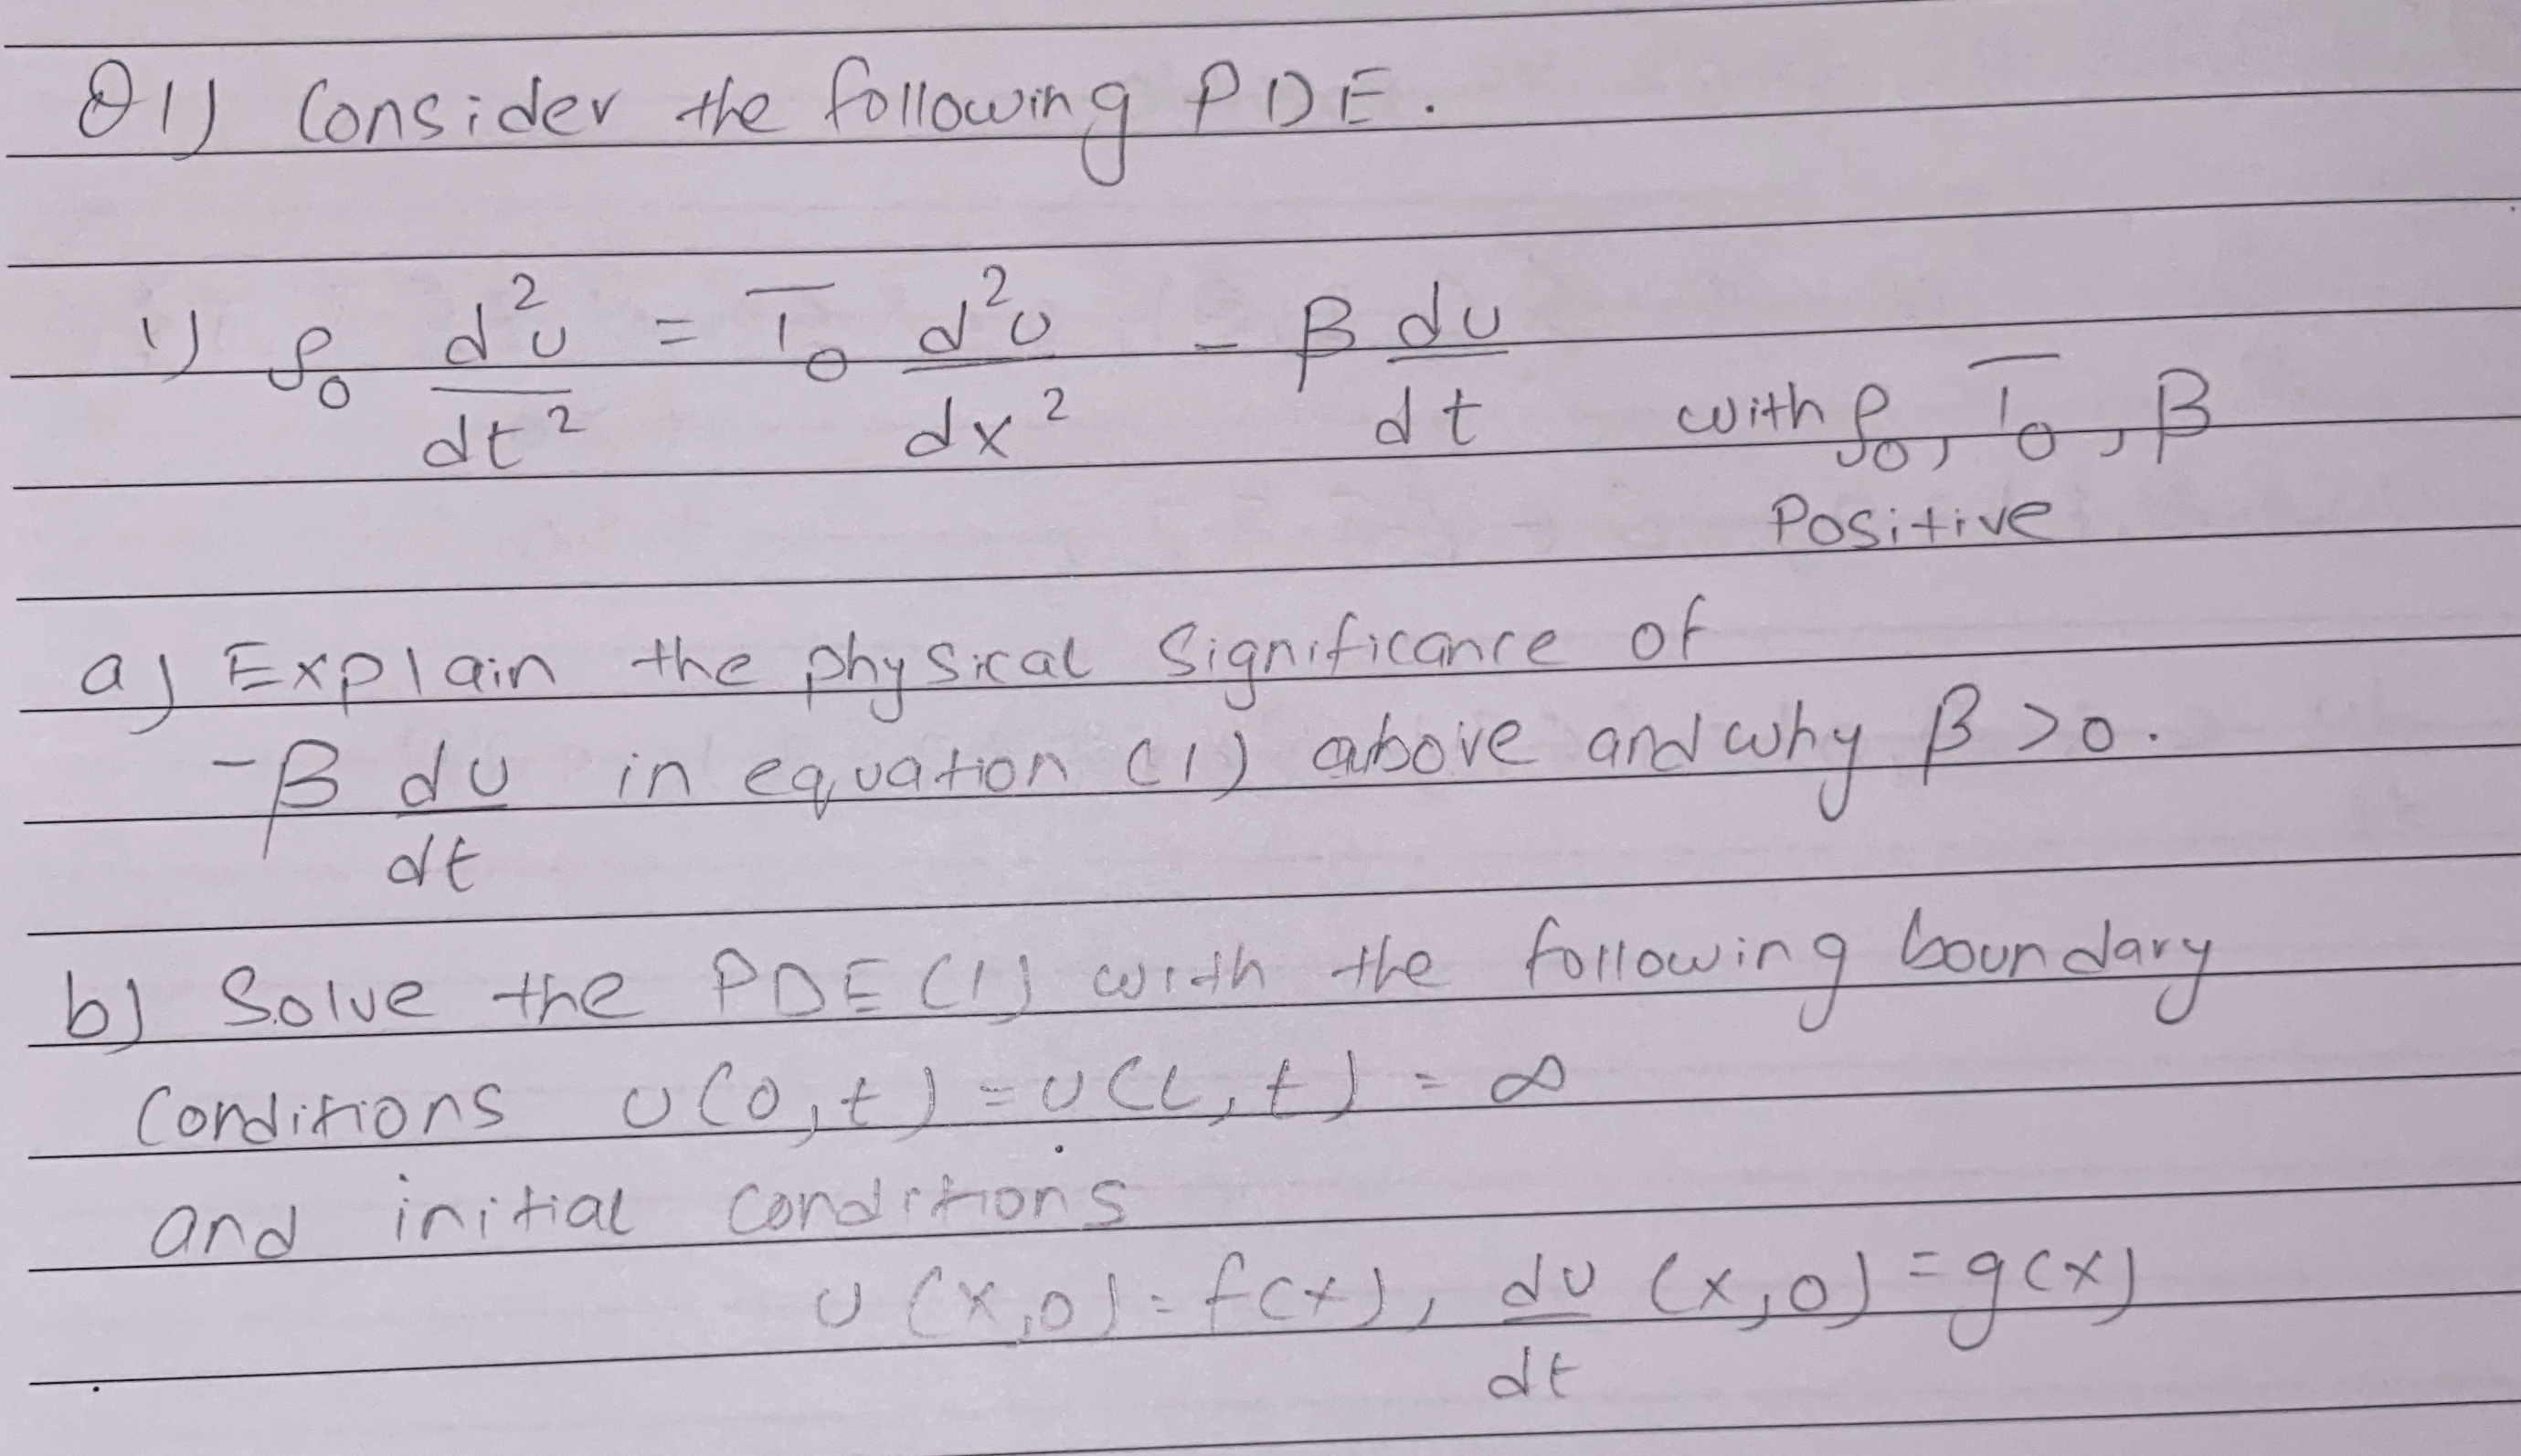 Q1) Consider the following PDE.
1) ρ₀ d²u/dt² = T₀ d²u/dx² - β du/dt with ρ₀, T₀, β
Positive
a) Explain the physical significance of
-β du/dt in equation (1) above and why β > 0.
b) Solve the PDE (1) with the following boundary
conditions u(0,t) = u(L,t) = ∞
and initial conditions
u(x,0) = f(x), du/dt (x,0) = g(x)